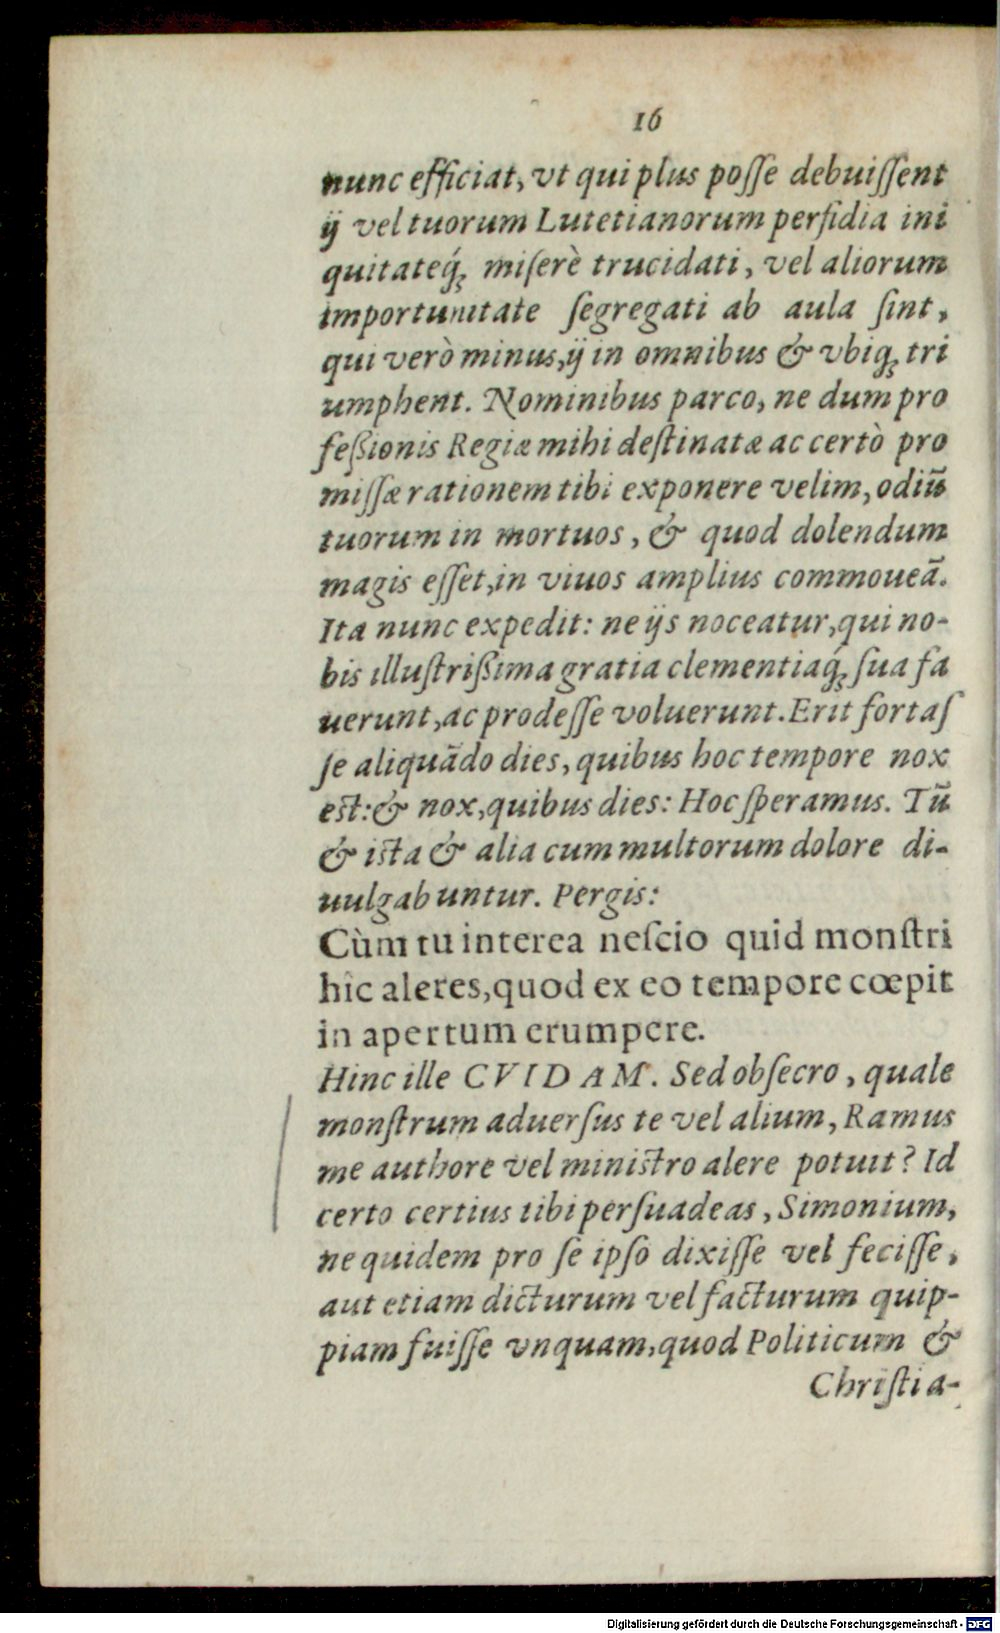 16
nunc efficiat, vt qui plus poſſe debuiſſent
ij vel tuorum Lutetianorum perfidia ini
quitateq́ꝫ miſerè trucidati, vel aliorum
importunitate ſegregati ab aula ſint,
qui verò minus, ij in omnibus & vbiqꝫ tri
umphent. Nominibus parco, ne dum pro
feßionis Regiæ mihi deſtinatæ ac certò pro
miſſæ rationem tibi exponere velim, odiū
tuorum in mortuos, & quod dolendum
magis eſſet, in viuos amplius commoueā.
Ita nunc expedit: ne ijs noceatur, qui no-
bis illuſtrißima gratia clementiaq́ꝫ ſua fa
uerunt, ac prodeſſe voluerunt. Erit fortaſ
ſe aliquādo dies, quibus hoc tempore nox
est: & nox, quibus dies: Hoc ſperamus. Tū
& ista & alia cum multorum dolore di-
uulgabuntur. Pergis:
Cùm tu interea neſcio quid monſtri
hîc aleres, quod ex eo tempore cœpit
in apertum erumpere.
Hinc ille CVIDAM. Sed obſecro, quale
monſtrum aduerſus te vel alium, Ramus
me authore vel ministro alere potuit? Id
certo certius tibi perſuadeas, Simonium,
ne quidem pro ſe ipſo dixiſſe vel feciſſe,
aut etiam dicturum vel facturum quip-
piam fuiſſe vnquam, quod Politicum &
Chriſtia-
Digitalisierung gefördert durch die Deutsche Forschungsgemeinschaft - DFG